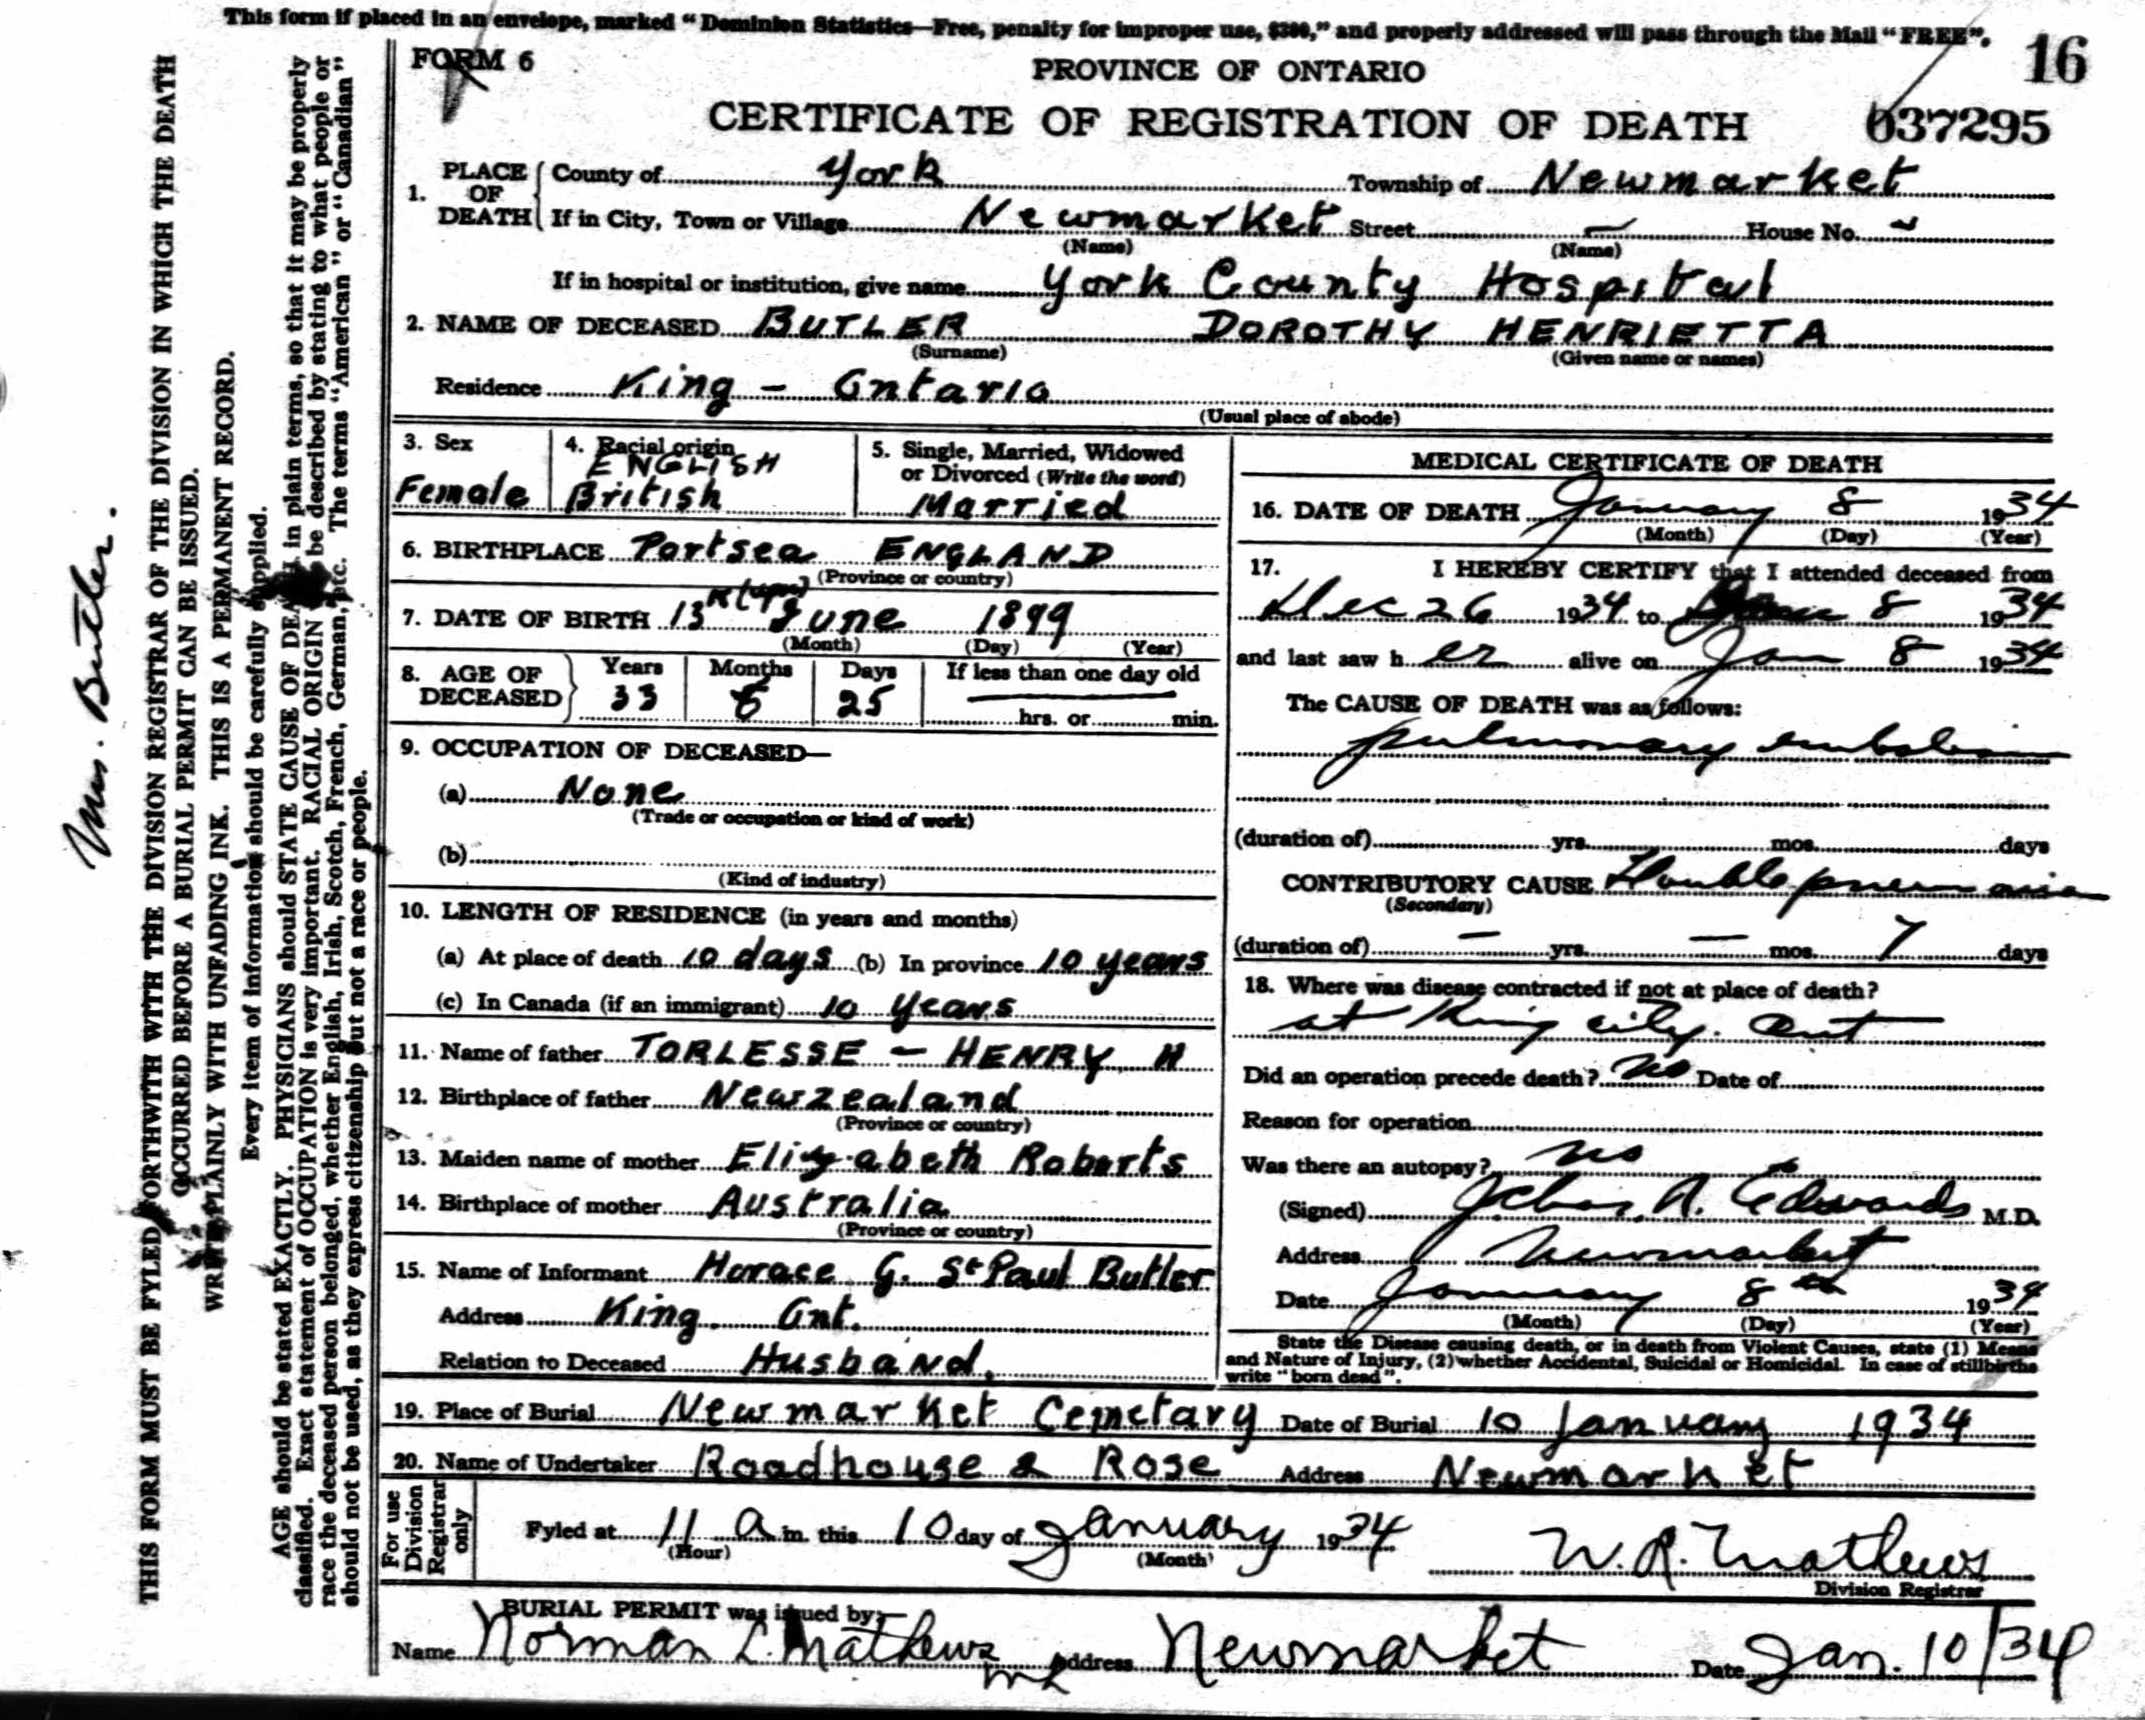 This form if placed in an envelope, marked “Dominion Statistics—Free, penalty for improper use, $300,” and properly addressed will pass through the Mail “FREE”.
16
FORM 6
PROVINCE OF ONTARIO
CERTIFICATE OF REGISTRATION OF DEATH 037295
1. PLACE OF DEATH
County of York Township of Newmarket
If in City, Town or Village Newmarket Street — House No. -
(Name) (Name)
If in hospital or institution, give name York County Hospital
2. NAME OF DECEASED BUTLER DOROTHY HENRIETTA
(Surname) (Given name or names)
Residence King - Ontario
(Usual place of abode)
3. Sex
Female
4. Racial origin
ENGLISH
British
5. Single, Married, Widowed
or Divorced (Write the word)
Married
6. BIRTHPLACE Portsea ENGLAND
(Province or country)
7. DATE OF BIRTH 13 June 1899
(Month) (Day) (Year)
8. AGE OF DECEASED
Years Months Days If less than one day old
33 6 25
hrs. or min.
9. OCCUPATION OF DECEASED—
(a) None
(Trade or occupation or kind of work)
(b)
(Kind of industry)
10. LENGTH OF RESIDENCE (in years and months)
(a) At place of death 10 days (b) In province 10 years
(c) In Canada (if an immigrant) 10 years
11. Name of father TORLESSE - HENRY H
12. Birthplace of father Newzealand
(Province or country)
13. Maiden name of mother Elizabeth Roberts
14. Birthplace of mother Australia
(Province or country)
15. Name of Informant Horace G. St Paul Butler
Address King. Ont.
Relation to Deceased Husband.
MEDICAL CERTIFICATE OF DEATH
16. DATE OF DEATH January 8 1934
(Month) (Day) (Year)
17. I HEREBY CERTIFY that I attended deceased from
Dec 26 1934 to Jan 8 1934
and last saw her alive on Jan 8 1934
The CAUSE OF DEATH was as follows:
pulmonary embolism
(duration of) yrs. mos. days
CONTRIBUTORY CAUSE Double pneumonia
(Secondary)
(duration of) — yrs. — mos. 7 days
18. Where was disease contracted if not at place of death?
at King City. Ont
Did an operation precede death? No Date of
Reason for operation
Was there an autopsy? No
(Signed) A. Edwards M.D.
Address Newmarket
Date January 8th 1934
(Month) (Day) (Year)
State the Disease causing death, or in death from Violent Causes, state (1) Means
and Nature of Injury, (2) whether Accidental, Suicidal or Homicidal. In case of stillbirths
write “born dead”.
19. Place of Burial Newmarket Cemetary Date of Burial 10 January 1934
20. Name of Undertaker Roadhouse & Rose Address Newmarket
For use Division Registrar only
Fyled at 11 a m. this 10 day of January 1934
(Hour) (Month)
W. R. Mathews
Division Registrar
BURIAL PERMIT was issued by:—
Name Norman L. Mathews Address Newmarket Date Jan. 10/34
Mrs. Butler.
THIS FORM MUST BE FYLED FORTHWITH WITH THE DIVISION REGISTRAR OF THE DIVISION IN WHICH THE DEATH
OCCURRED BEFORE A BURIAL PERMIT CAN BE ISSUED.
WRITE PLAINLY WITH UNFADING INK. THIS IS A PERMANENT RECORD.
Every item of information should be carefully supplied.
AGE should be stated EXACTLY. PHYSICIANS should STATE CAUSE OF DEATH in plain terms, so that it may be properly
classified. Exact statement of OCCUPATION is very important. RACIAL ORIGIN be described by stating to what people or
race the deceased person belonged, whether English, Irish, Scotch, French, German, etc. The terms “American” or “Canadian”
should not be used, as they express citizenship but not a race or people.